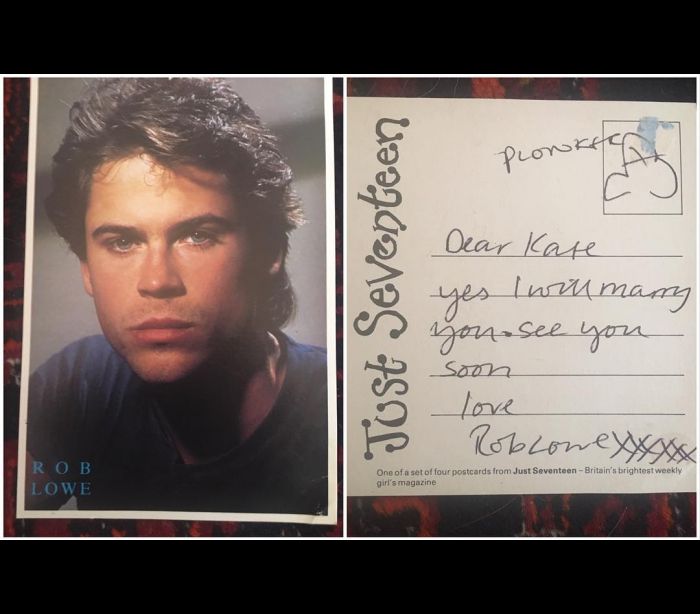 ROB
LOWE
Just Seventeen
PLONKER
Dear Kate
yes I will marry
you. see you
soon
love
Rob Lowe XXXXX
One of a set of four postcards from Just Seventeen – Britain's brightest weekly
girl's magazine